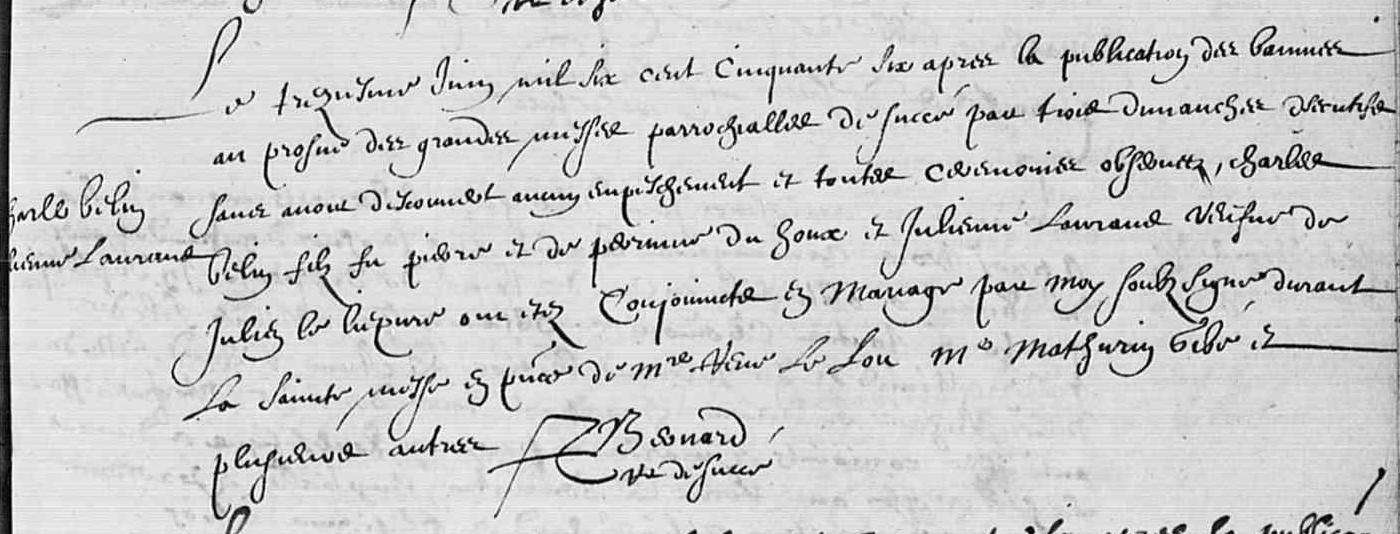 Le trezeisme Juin mil six cent Cinquante six apres la publication des bannies
au prosne des grandes messes parrochialles de succé par trois dimanches
Charlle belin
Jullienne Laurans
sans avoir descouvert aucun enpeschement et toutes ceremonies observez, charlles
belin filz fu pierre et de perrinne du houx et Julienne Laurans veufve de
Julien le liepvre ont estez Conjoinctes en Mariage par moy soubz signé durant
La sainte messe en pnce de Mre Rene Le Lou Me Mathurin et
plusieurs autres
Benard
de succe